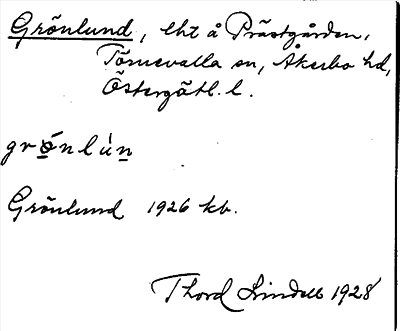 Grönlund, lht å Prästgården,
Törnevalla sn, Åkerbo hd,
Östergötl. l.
grö̀nlún
Grönlund 1926 kb.
Thord Lindell 1928